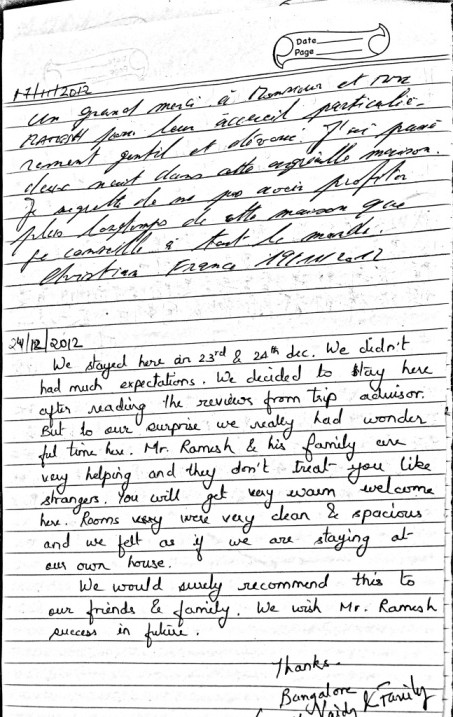 Date
Page
17/11/2012
Un grand merci à Monsieur et Mme
pour leur accueil particuliè-
rement gentil et dévoué. J'ai passé
deux nuit dans cette maison.
Je regrette de ne pas avoir profiter
plus longtemps de cette maison que
je conseille à tout le monde.
Christian France 19/11/2012
24/12/2012
We stayed here on 23rd & 24th dec. We didn't
had much expectations. We decided to stay here
after reading the reviews from trip advisor.
But to our surprise we really had wonder
ful time here. Mr. Ramesh & his family are
very helping and they don't treat you like
strangers. You will get very warm welcome
here. Rooms very were very clean & spacious
and we felt as if we are staying at
our own house.
We would surely recommend this to
our friends & family. We wish Mr. Ramesh
success in future.
Thanks-
Bangalore
& Family